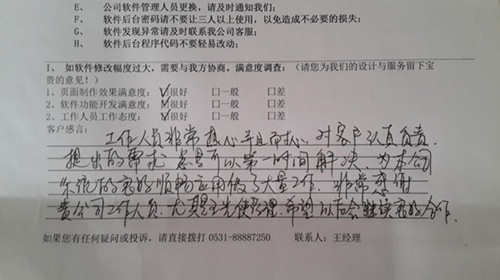 E、 公司软件管理人员更换,请及时通知我们;
F、 软件后台密码请不要让三人以上使用,以免造成不必要的损失;
G、 软件发现异常请及时联系我公司客服;
H、 软件后台程序代码不要轻易改动;
I、如软件修改幅度过大,需要与我方协商。满意度调查:(请您为我们的设计与服务留下宝
贵的意见!)
1、页面制作效果满意度: ☑很好 口一般 口差
2、软件功能开发满意度: ☑很好 口一般 口差
2、工作人员工作态度: ☑很好 口一般 口差
客户感言:
工作人员非常热心并且耐心,对客户认真负责,
提出的需求总是可以第一时间解决,为本公司
系统的良好顺畅应用做了大量工作,非常感谢
贵公司工作人员,尤其王先使经理,希望以后会继续良好合作.
如果您有任何疑问或投诉,请直接拨打 0531-88887250 联系人:王经理